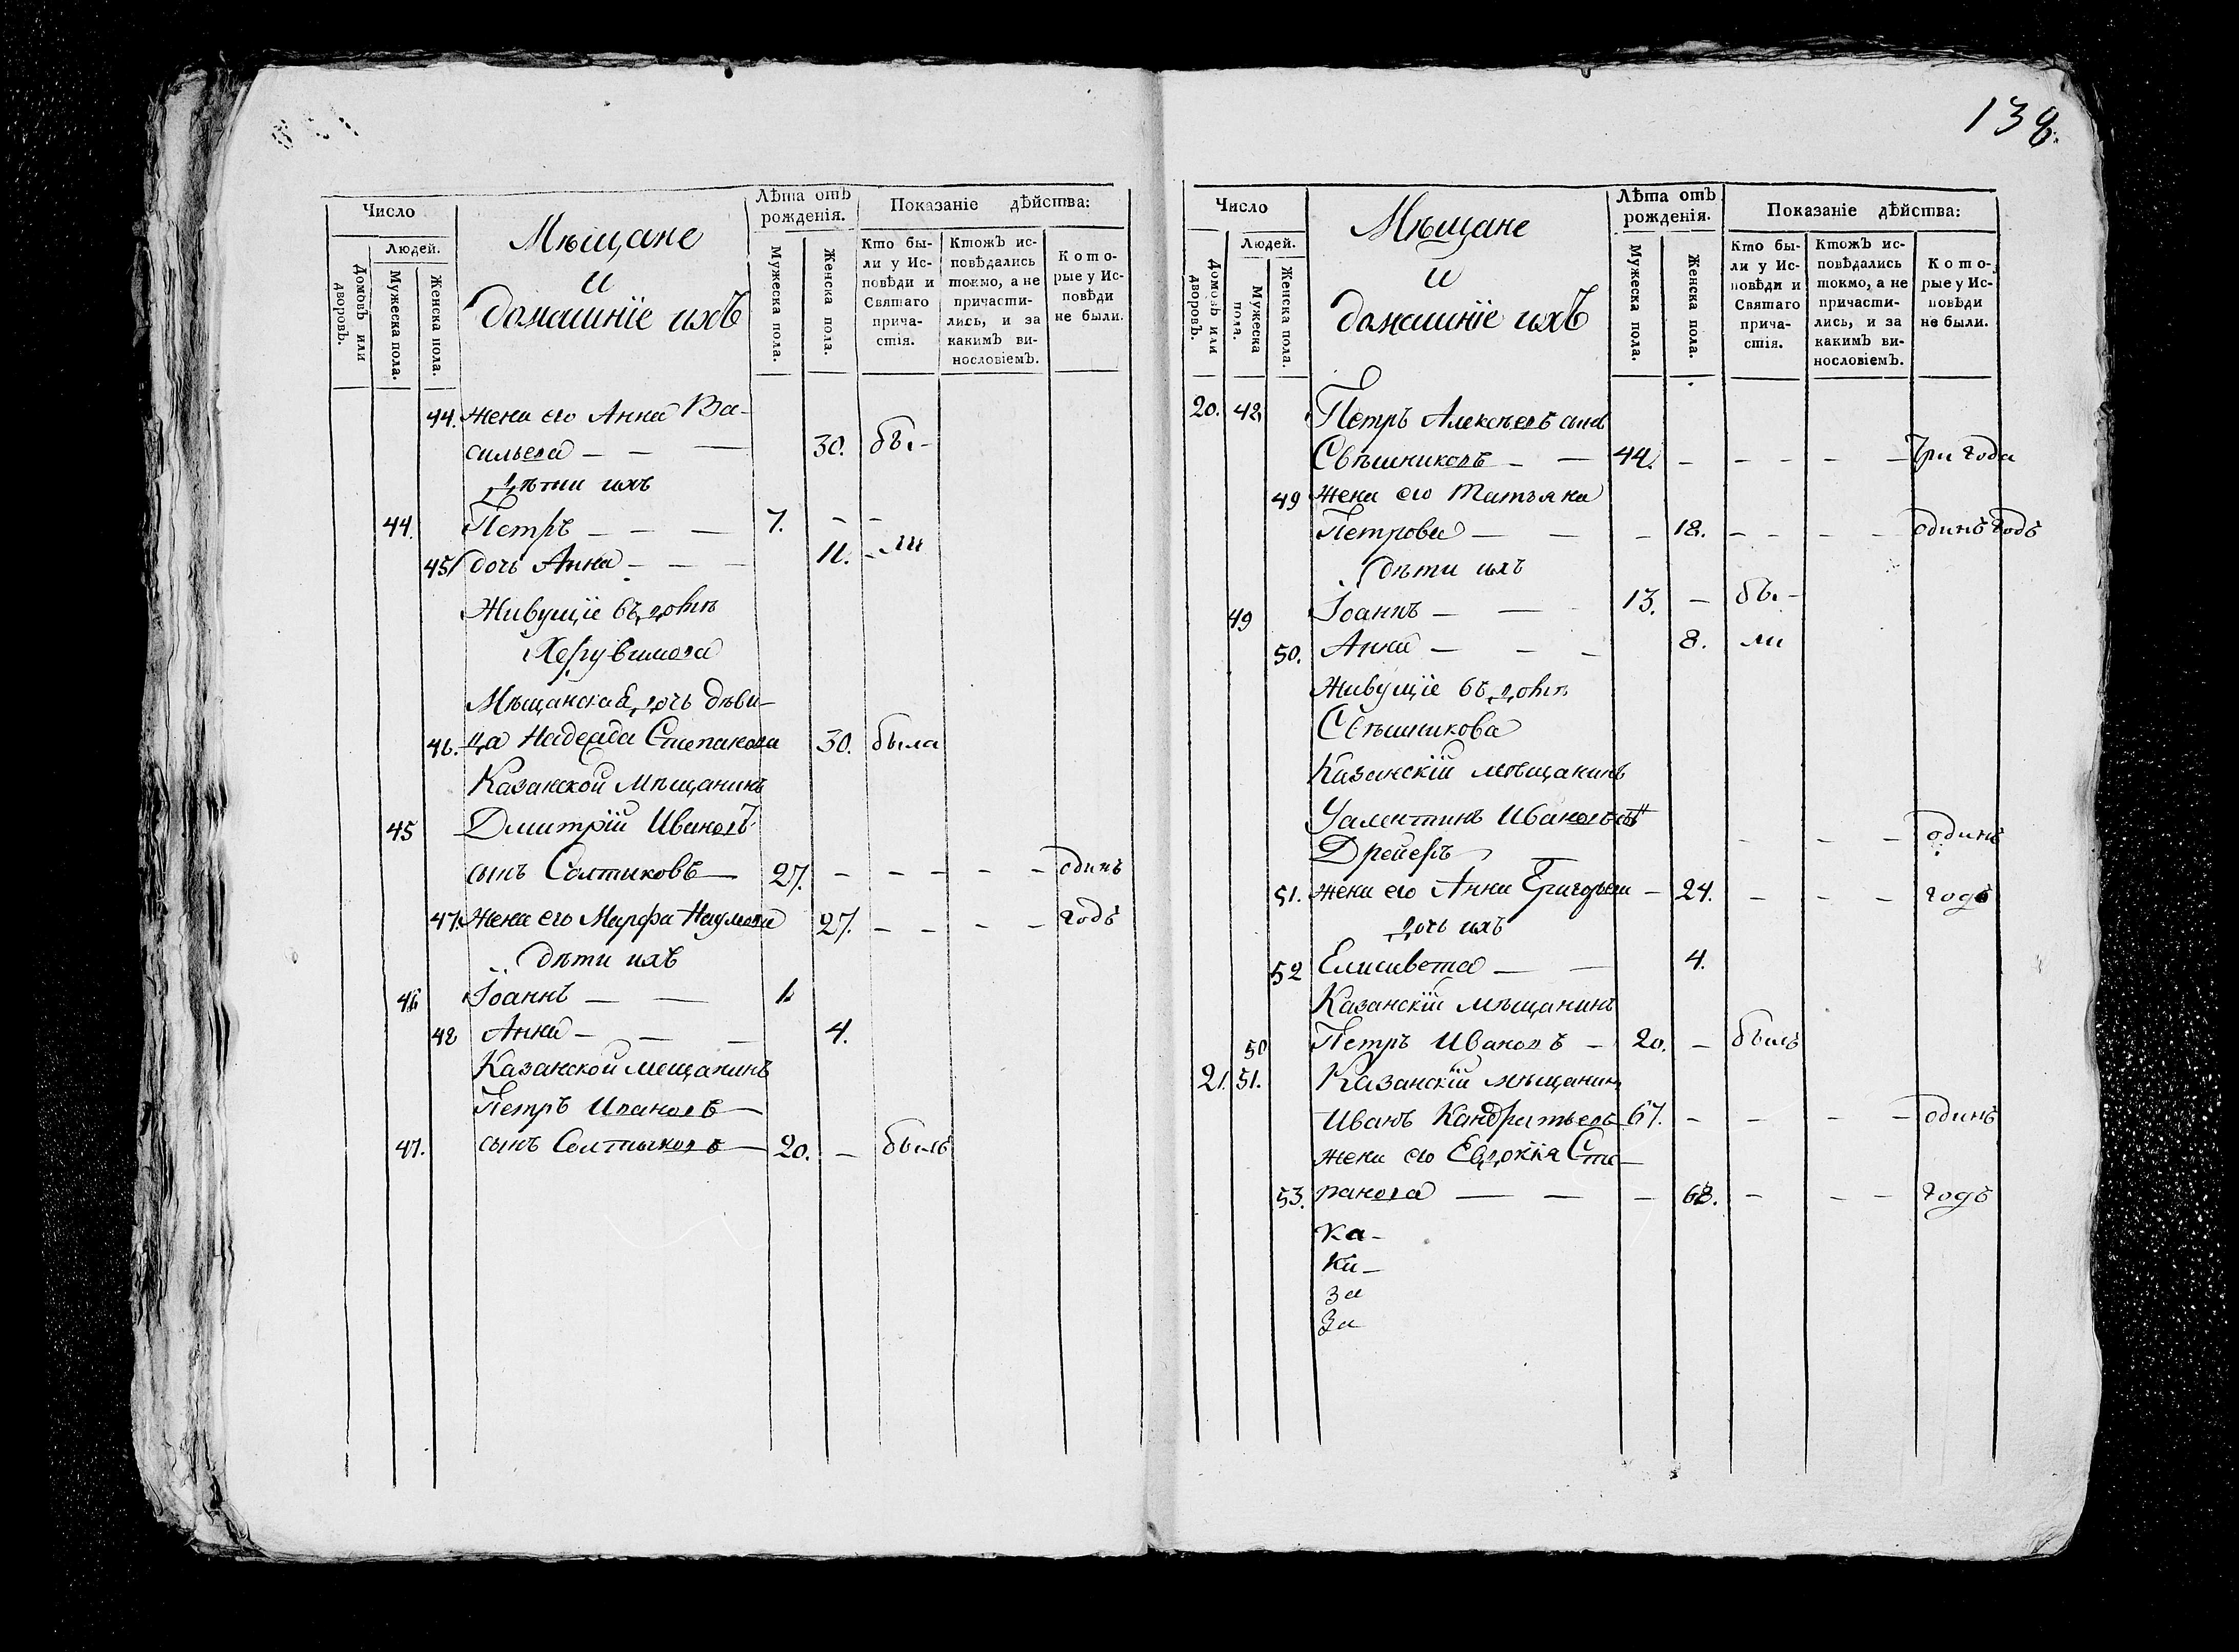 138.
Число
Людей.
Домовъ или дворовъ.
Мужеска пола.
Женска пола.
Мѣщане
и
домашнїе ихъ
Лѣта отъ рожденія.
Мужеска пола.
Женска пола.
Показаніе дѣйства:
Кто были у Исповѣди и Святаго причастія.
Ктожъ исповѣдались токмо, а не причастились, и за какимъ винословіемъ.
Которые у Исповѣди не были.
44. жена его Анна Ва-
сильева — — 30. бы-
Дѣти ихъ
44. Петръ — — — 7. — —
45 дочь Анна — — — 11. — ли
Живущїе въ домѣ
Херувимова
Мѣщанская дочь дѣви-
46. ца Надежда Степанова 30. была
Казанской Мѣщанинъ
45 Дмитрїй Ивановъ
сынъ Солтиковъ — 27. — — — — — одинъ
47. Жена его Марфа Наумова 27. — — — — годъ
дѣти ихъ
46 Іоаннъ — — 1.
48 Анна — — — 4.
Казанской мещанинъ
Петръ Ивановъ —
47. сынъ Солтыковъ — 20. — былъ
Число
Людей.
Домовъ или дворовъ.
Мужеска пола.
Женска пола.
Мѣщане
и
домашнїе ихъ
Лѣта отъ рожденія.
Мужеска пола.
Женска пола.
Показаніе дѣйства:
Кто были у Исповѣди и Святаго причастія.
Ктожъ исповѣдались токмо, а не причастились, и за какимъ винословіемъ.
Которые у Исповѣди не были.
20. 48 Петръ Алексѣевъ сынъ
Свѣшниковъ — — 44. — — — — — Три года
49 жена его Татьяна
Петрова — — — 18. — — — — одинъ годъ
дѣти ихъ
49 Іоаннъ — — 13. — бы-
50. Анна — — — 8. ли
Живущїе въ домѣ
Свѣшникова
Казанскїй мѣщанинъ
Уалентинъ Ивановъ
Дрейеръ — — — — одинъ
51. жена его Анна Григорьева — 24. — — — годъ
дочь ихъ
52 Елисавета — — 4.
Казанскїй мѣщанинъ
50 Петръ Ивановъ — 20. — былъ
21. 51. Казанскїй мѣщанинъ
Иванъ Кандратьевъ 67. — — — — одинъ
жена его Евдокїя Сте-
53. панова — — — 68. — — — годъ
Ка-
Ка-
За
За